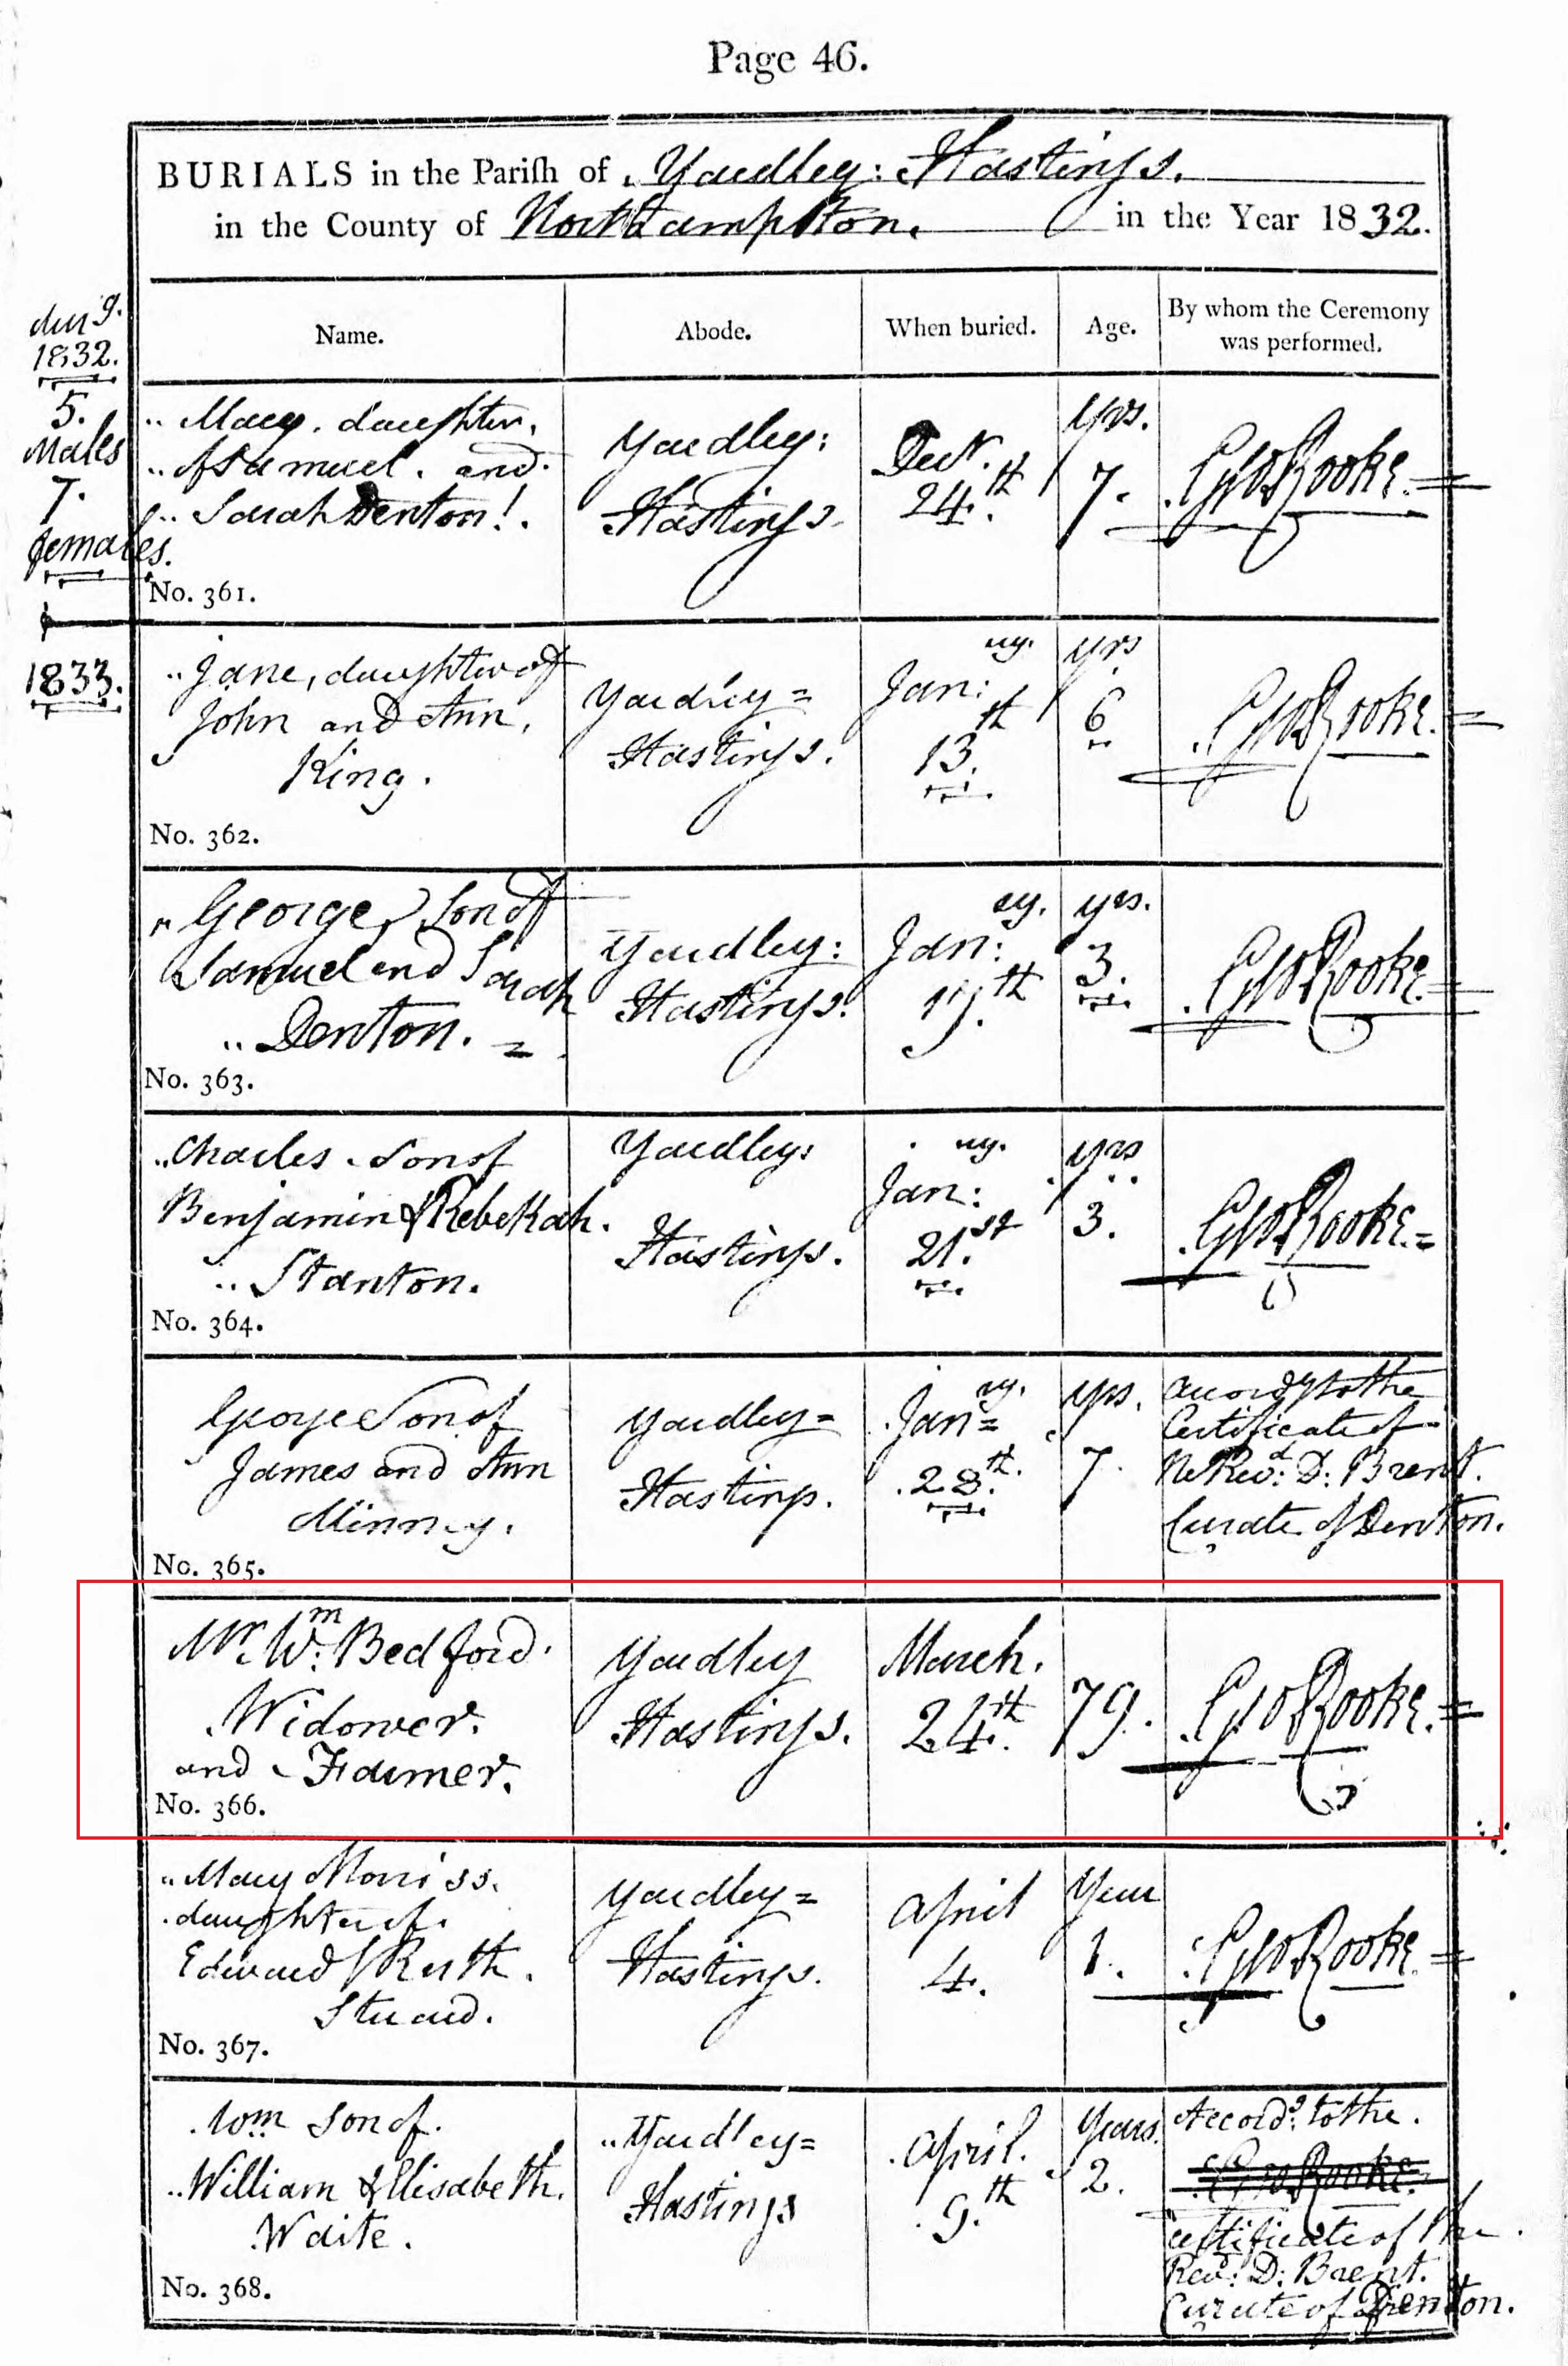 Page 46.
BURIALS in the Parish of Yardley: Hastings.
in the County of Northampton. in the Year 1832.
Name. Abode. When buried. Age. By whom the Ceremony was performed.
dur.g
1832.
5.
Males
7.
females.
Mary. daughter. Yardley: Decr. yrs. Geo Rooke.
of Samuel. and Hastings 24.th 7.
Sarah Denton!.
No. 361.
1833.
Jane, daughter of Yardley= Jan:ry. yrs Geo Rooke.
John and Ann, Hastings. 13.th 6
King.
No. 362.
George, Son of Yardley: Jan:ry. yrs. Geo Rooke.
Samuel and Sarah Hastings. 17.th 3.
Denton. =
No. 363.
Charles. Son of Yardley: Jan:ry. yrs Geo Rooke.=
Benjamin & Rebekah. Hastings. 21.st 3.
Stanton.
No. 364.
George Son of Yardley= Jan=ry. yrs. accordg to the
James and Ann Hastings. 28.th 7. Certificate of
Minney. the Revd: D: Brent.
Curate of Denton.
No. 365.
Mr. Wm: Bedford. Yardley March. 79. Geo Rooke.=
Widower. Hastings. 24.th
and Farmer.
No. 366.
Mary Morriss. Yardley= April Year Geo Rooke=
daughter of. Hastings. 4. 1.
Edward & Ruth.
No. 367.
Wm Son of. Yardley= April. Years. Accordg: to the.
William & Elisabeth. Hastings 9.th 2. Geo Rooke.
Waite. certificate of the
Revd: D: Brent.
Curate of Denton.
No. 368.